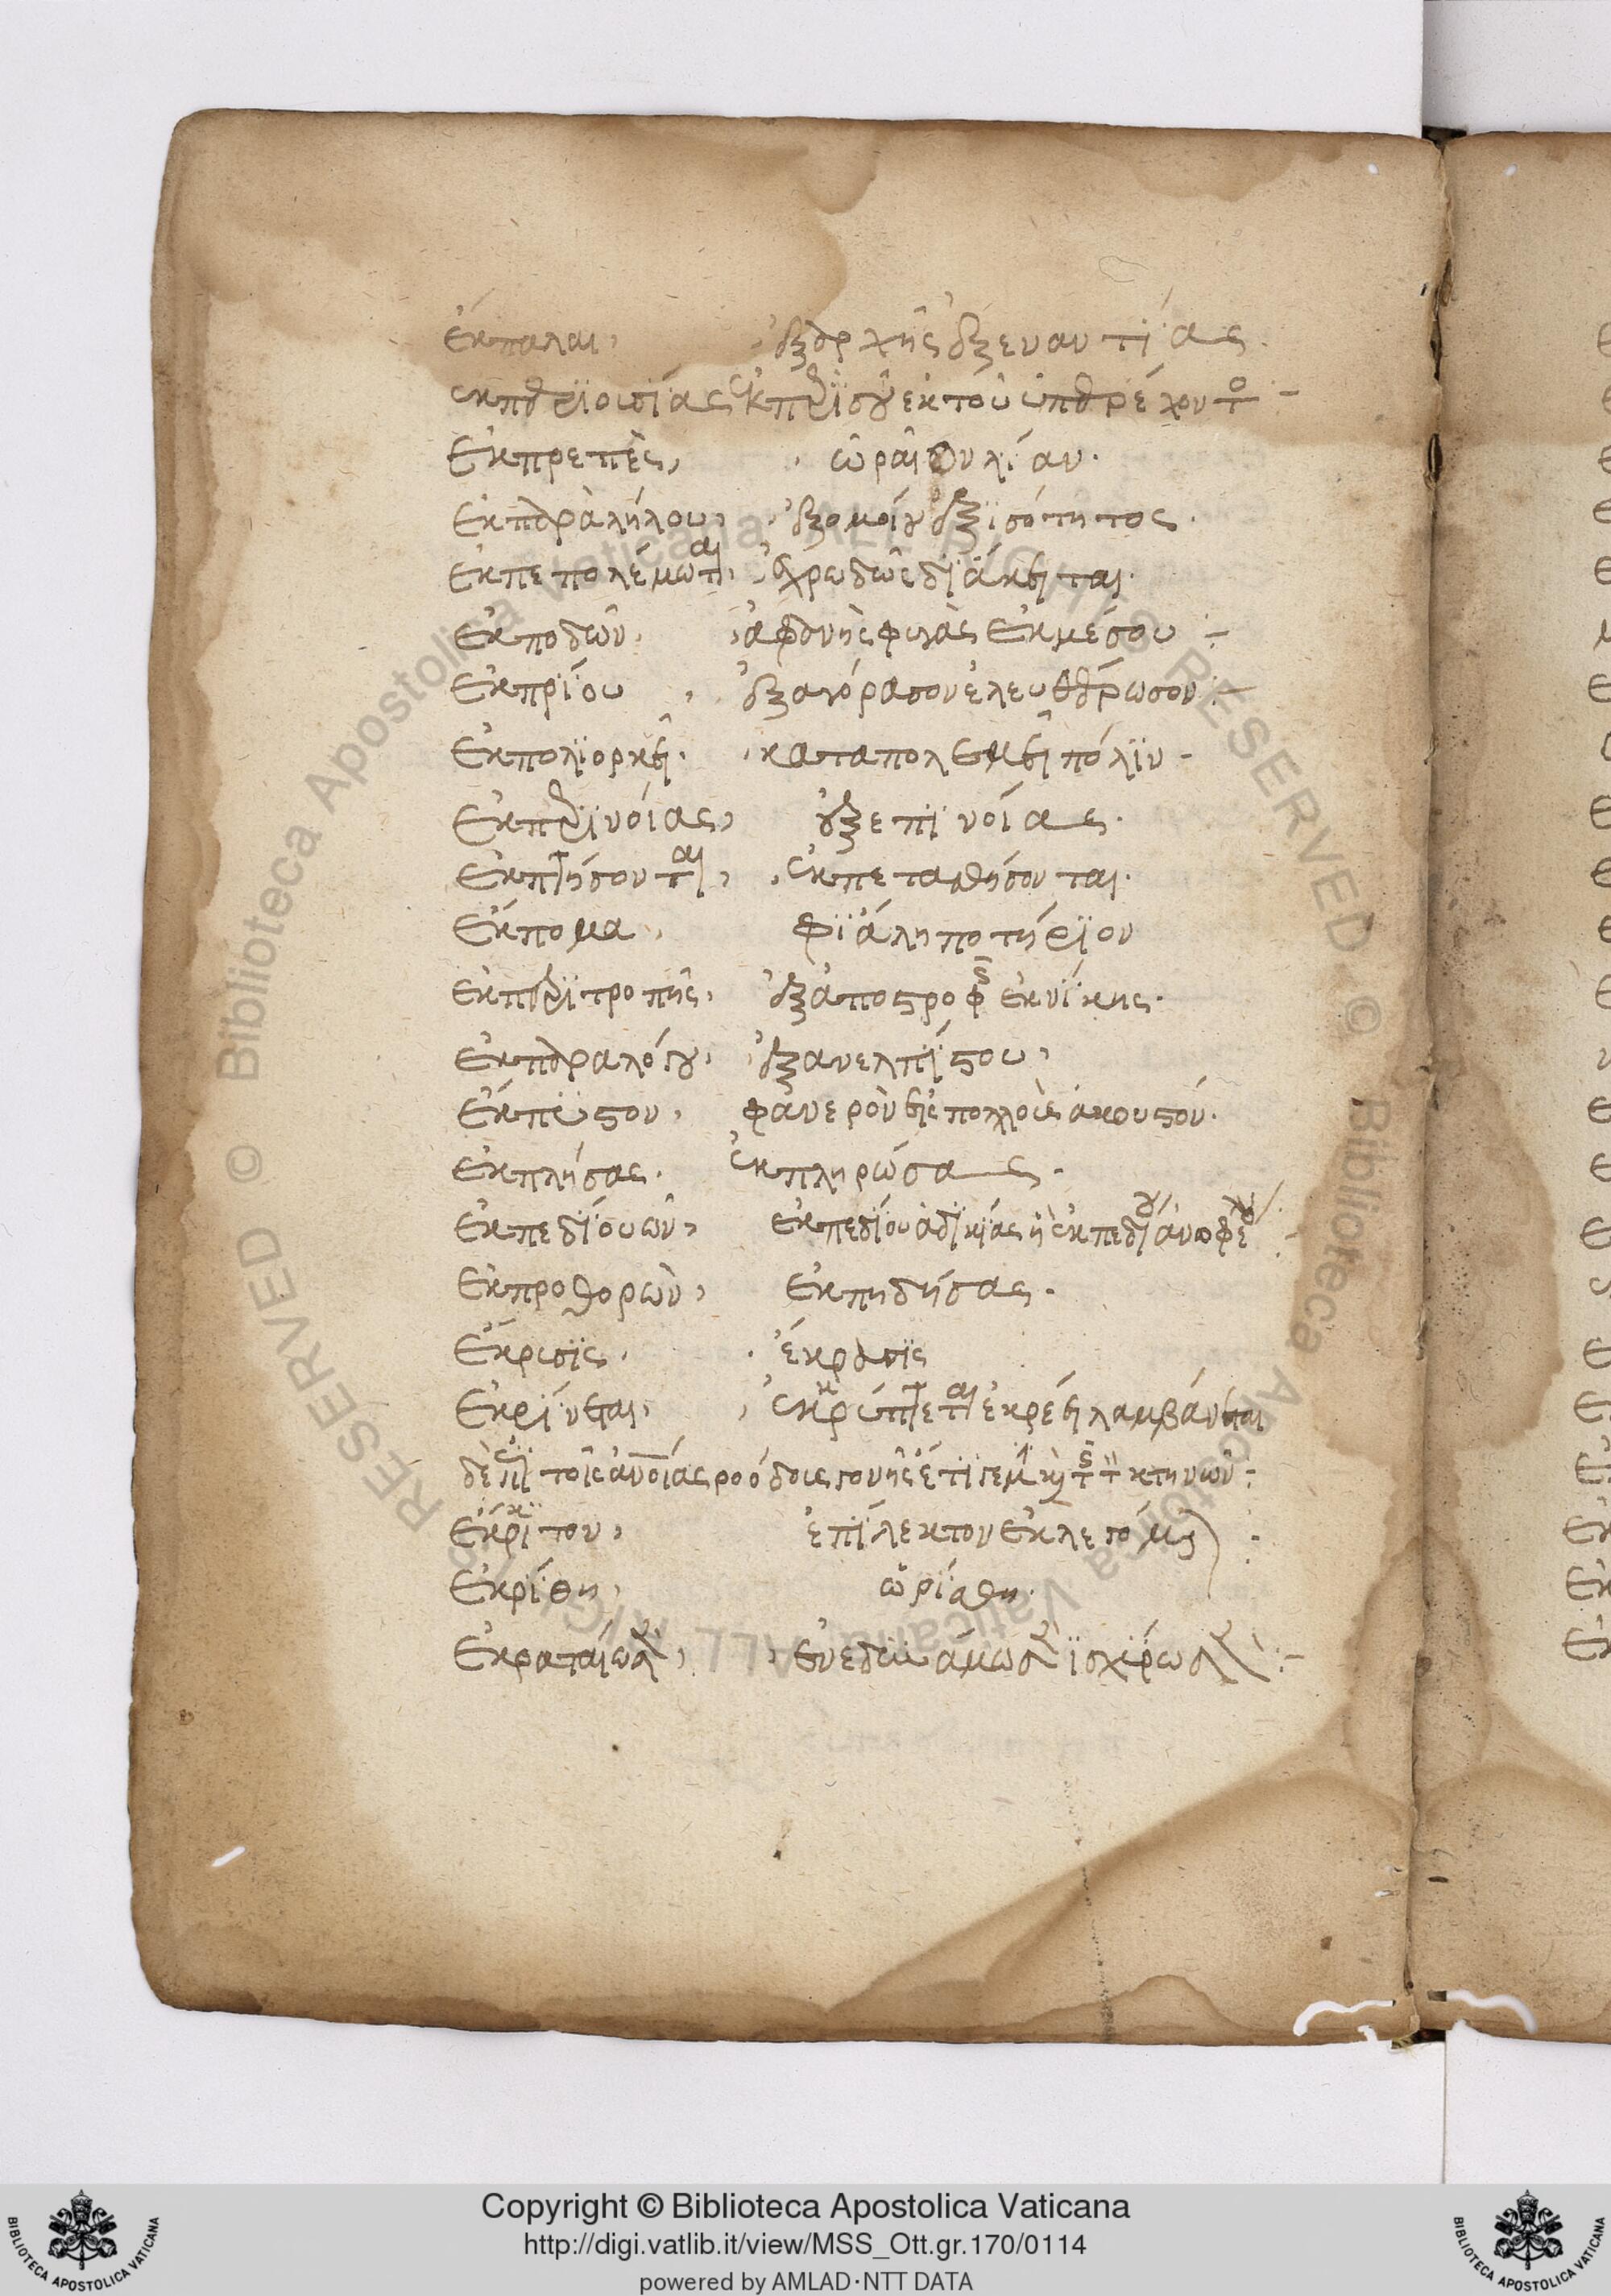 ἐκπαλαι, ἐξαρχῆς ἐξεναντίας.
ἐκπεριουσίας ἐκπερισσοῦ ἐκ τοῦ ὑπερέχοντο
Ἐκπρεπὲς, ὡραῖον λίαν.
Ἐκπαραλήλου, ἐξομοίου ἐξισότητος.
Ἐκπεπολέμωται, ἐχθρωδῶς διάκειται.
Ἐκποδῶν, ἀφανὴς ἐκμέσου
Ἐκπρίου, ἐξαγόρασον ἐλευθέρωσον
Ἐκπολιορκεῖ. καταπολεμεῖ πόλιν
Ἐκπερινοίας, ἐξεπινοίας.
Ἐκπτήσονται, ἐκπετασθήσονται.
Ἔκπομα, φιάλη ποτήριον
Ἐκπεριτροπῆς, ἐξάποστροφῆς ἐκνίκης.
Ἐκπαραλόγου, ἐξανελπίστου,
Ἔκπυστον, φανερὸν εἰς πολλοῖς ἀκουστόν.
Ἐκπλήσας. ἐκπληρώσας.
Ἐκπεδίου ὠν, ἐκπεδίου ἀδικίας ἢ ἐκπεδι ἀνωφε
Ἐκπροθορὼν, ἐκπηδήσας.
Ἔκρισις. ἔκρασις
Ἐκρίνεται, ἐκρύπτεται ἐκρέει λαμβάνεται
δὲ ἐπὶ τοῖς κτηνῶν
Ἔκκριτον, ἐπίλεκτον ἐκλεγόμενον
Ἐκρίθη, ὡρίσθη.
Ἐκραταιώθη, ἐνεδυάμωσεν ἰσχύρωσεν
Copyright © Biblioteca Apostolica Vaticana
http://digi.vatlib.it/view/MSS_Ott.gr.170/0114
powered by AMLAD·NTT DATA
BIBLIOTECA APOSTOLICA VATICANA
BIBLIOTECA APOSTOLICA VATICANA
© Biblioteca Apostolica Vaticana ALL RIGHTS RESERVED © Biblioteca Apostolica Vaticana ALL RIGHTS RESERVED